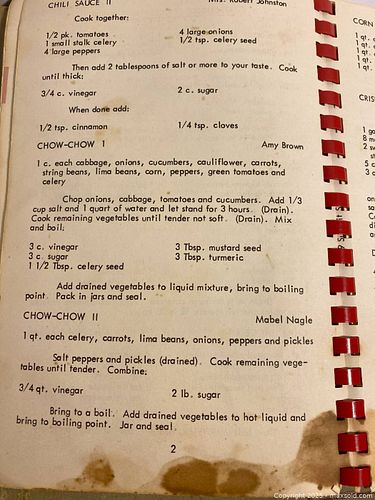 CHILI SAUCE II Mrs. Robert Johnston
Cook together:
1/2 pk. tomatoes 4 large onions
1 small stalk celery 1/2 tsp. celery seed
4 large peppers
Then add 2 tablespoons of salt or more to your taste. Cook
until thick:
3/4 c. vinegar 2 c. sugar
When done add:
1/2 tsp. cinnamon 1/4 tsp. cloves
CHOW-CHOW I Amy Brown
1 c. each cabbage, onions, cucumbers, cauliflower, carrots,
string beans, lima beans, corn, peppers, green tomatoes and
celery
Chop onions, cabbage, tomatoes and cucumbers. Add 1/3
cup salt and 1 quart of water and let stand for 3 hours. (Drain).
Cook remaining vegetables until tender not soft. (Drain). Mix
and boil:
3 c. vinegar 3 Tbsp. mustard seed
3 c. sugar 3 Tbsp. turmeric
1 1/2 Tbsp. celery seed
Add drained vegetables to liquid mixture, bring to boiling
point. Pack in jars and seal.
CHOW-CHOW II Mabel Nagle
1 qt. each celery, carrots, lima beans, onions, peppers and pickles
Salt peppers and pickles (drained). Cook remaining vege-
tables until tender. Combine:
3/4 qt. vinegar 2 lb. sugar
Bring to a boil. Add drained vegetables to hot liquid and
bring to boiling point. Jar and seal.
2
CORN
1 qt.
1 qt.
1 qt.
1 qt.
CRIS
Copyright 2025 - maxsold.com